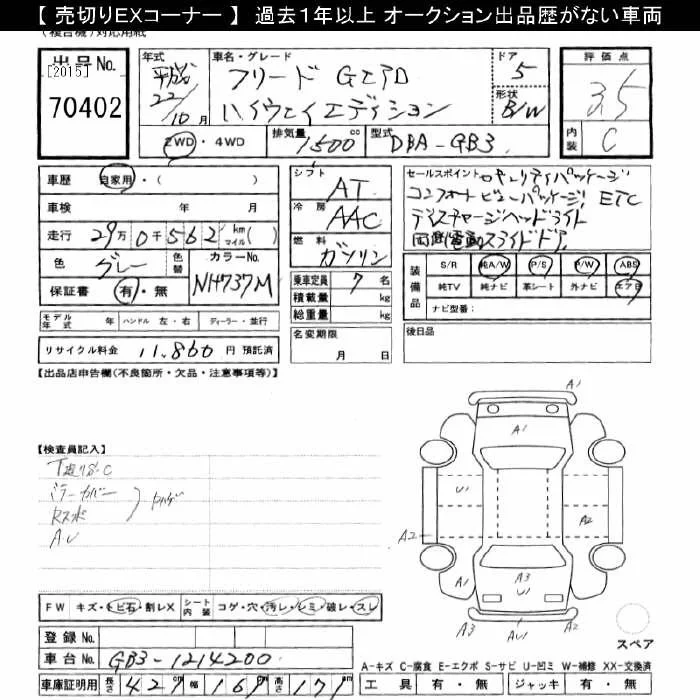 【 売切りEXコーナー 】 過去1年以上 オークション出品歴がない車両
(複合機)対応用紙
出品 No.
[2015]
70402
年式
平成
22/10 月
車名・グレード
フリード Gエアロ
ハイウェイエディション
ドア
5
形状
B/W
評価点
3.5
内装
C
2WD・4WD
排気量 1500 cc
型式 DBA-GB3
車歴 自家用・( )
車検 年 月
走行 29万 0千 562 km(マイル)
色 グレー
色替
カラーNo.
NH737M
保証書 有・無
シフト AT
冷房 AAC
燃料 ガソリン
乗車定員 7 名
積載量 kg
総重量 kg
セールスポイント セキュリティパッケージ
コンフォートビューパッケージ, ETC
ディスチャージヘッドライト
両側電動スライドドア.
装備品
S/R 純A/W P/S P/W ABS
純TV 純ナビ 革シート 外ナビ エアB
ナビ型番:
モデル年式 年 ハンドル 左・右 ディーラー・並行
リサイクル料金 11,860 円 預託済
名変期限
月 日
後日品
【出品店申告欄(不良箇所・欠品・注意事項等)】
【検査員記入】
ミラーカバー
A1
A1
U1
A2
A2
A3
A3
AU1
A1
FW キズ・トビ石・割レX シート内装 コゲ・穴・汚レ・シミ・破レ・スレ
登録 No.
車台 No. GB3-1214200
車庫証明用 長さ 427cm 幅 169cm 高さ 171cm
スペア
A-キズ C-腐食 E-エクボ S-サビ U-凹ミ W-補修 XX-交換済
工具 有・無 ジャッキ 有・無